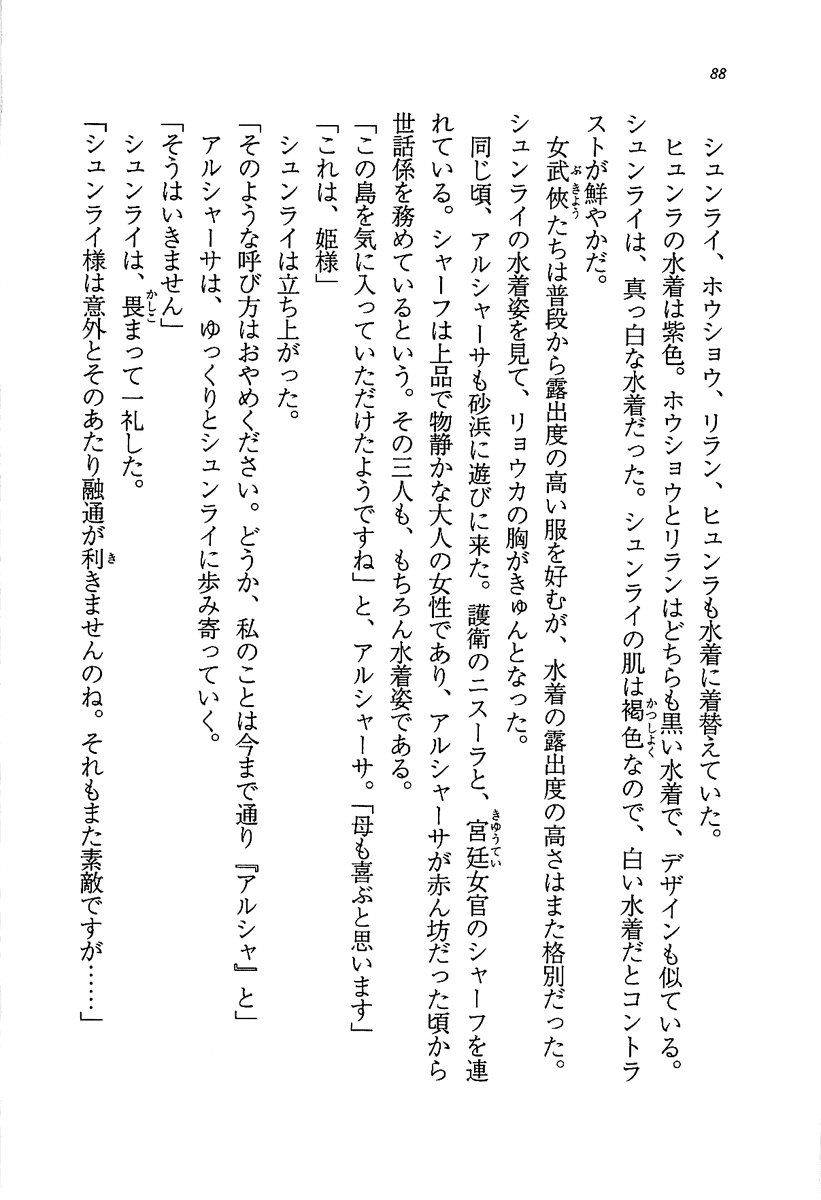 88
シュンライ、ホウショウ、リラン、ヒュンラも水着に着替えていた。
ヒュンラの水着は紫色。ホウショウとリランはどちらも黒い水着で、デザインも似ている。
シュンライは、真っ白な水着だった。シュンライの肌は褐色なので、白い水着だとコントラ
ストが鮮やかだ。
女武侠たちは普段から露出度の高い服を好むが、水着の露出度の高さはまた格別だった。
シュンライの水着姿を見て、リョウカの胸がきゅんとなった。
同じ頃、アルシャーサも砂浜に遊びに来た。護衛のニスーラと、宮廷女官のシャーフを連
れている。シャーフは上品で物静かな大人の女性であり、アルシャーサが赤ん坊だった頃から
世話係を務めているという。その三人も、もちろん水着姿である。
「この島を気に入っていただけたようですね」と、アルシャーサ。「母も喜ぶと思います」
「これは、姫様」
シュンライは立ち上がった。
「そのような呼び方はおやめください。どうか、私のことは今まで通り『アルシャ』と」
アルシャーサは、ゆっくりとシュンライに歩み寄っていく。
「そうはいきません」
シュンライは、畏まって一礼した。
「シュンライ様は意外とそのあたり融通が利きませんのね。それもまた素敵ですが……」